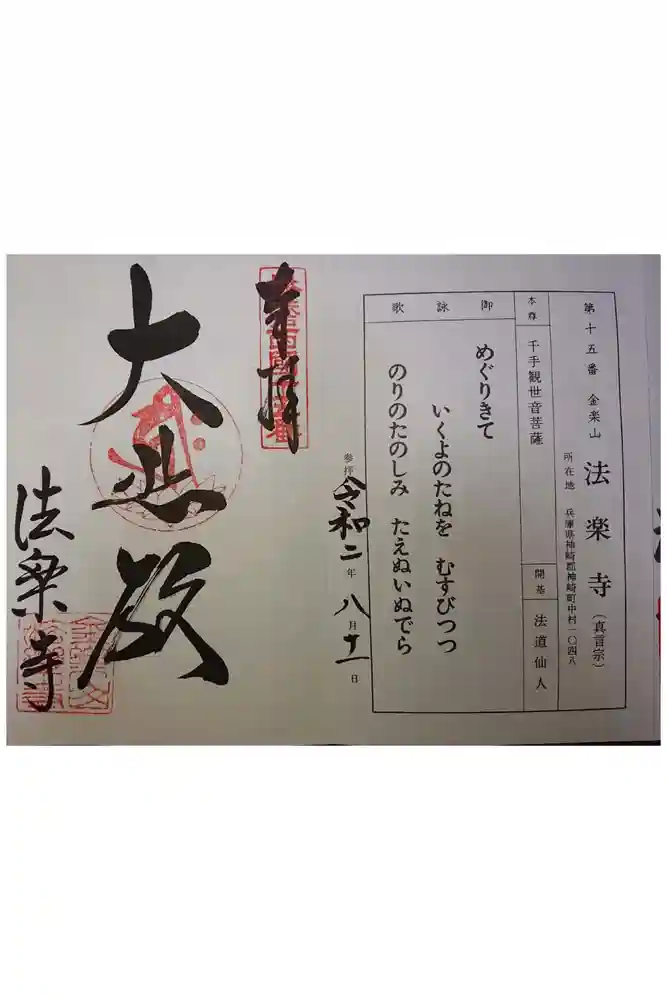 第十五番 金楽山 法楽寺(真言宗)
所在地 兵庫県神崎郡神崎町中村一〇四八
本尊 千手観世音菩薩
開基 法道仙人
御詠歌
めぐりきて
いくよのたねを むすびつつ
のりのたのしみ たえぬいぬでら
参拝 令和二年八月十一日
奉拝
大悲殿
法楽寺